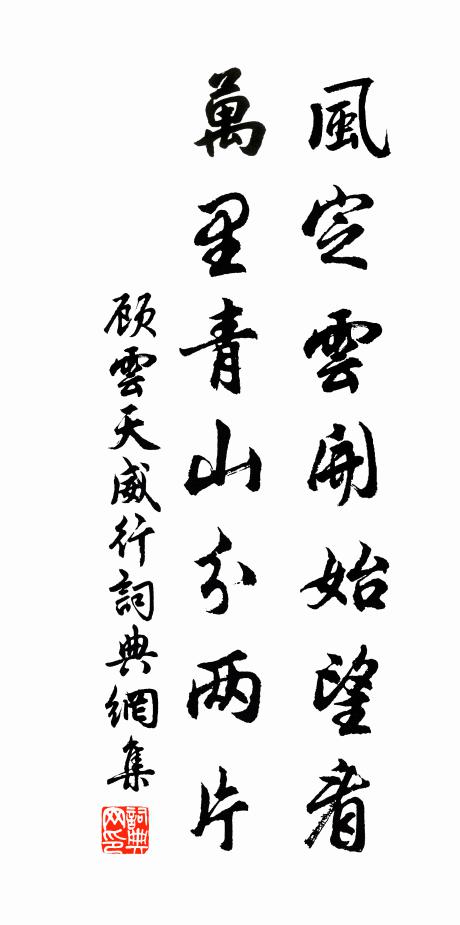 風定雲開始望看
萬里青山分两片
顾雲天威行詞典網集
詞典
网印